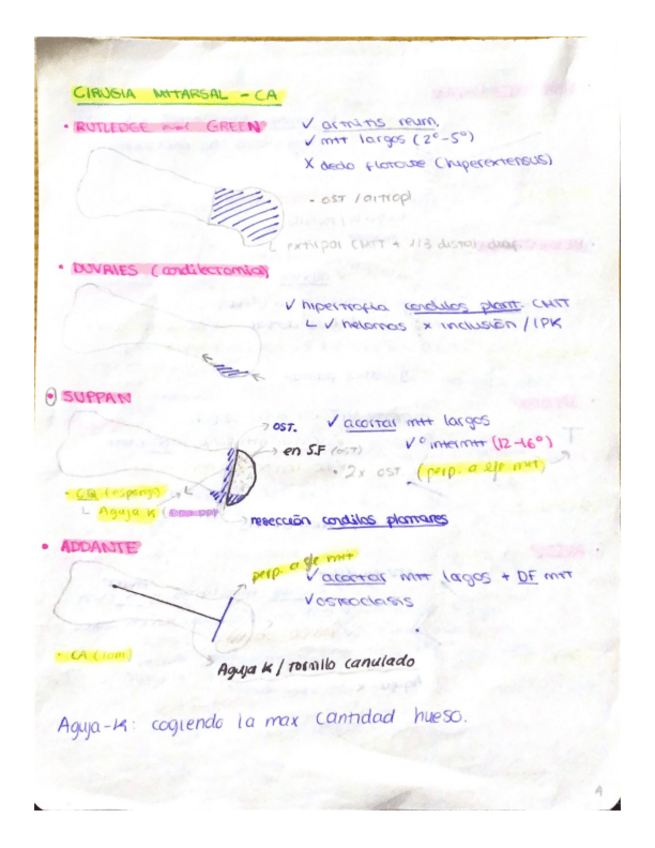 CIRUGIA MTTARSAL - CA
• RUTLEDGE and GREEN
✓ artritis reum.
✓ mtt largos (2º-5º)
X dedo flotante (hiperextensus)
- OST / artropl
└ extirpar CMTT + 1/3 distal diaf.
• DUVRIES (condilectomia)
✓ hipertrofia condilos plant. CMTT
└ ✓ helomas x inclusión / IPK
• SUPPAN
OST.
✓ acortar mtt largos
en S.F (OST)
✓º intermtt (12-16º)
• 2x OST (perp. a eje mtt)
└ Aguja K
resección condilos plantares
• ADDANTE
perp. a eje mtt
✓ acortar mtt largos + DF mtt
✓ osteoclasis
Aguja K / Tornillo canulado
Aguja-K: cogiendo la max cantidad hueso.